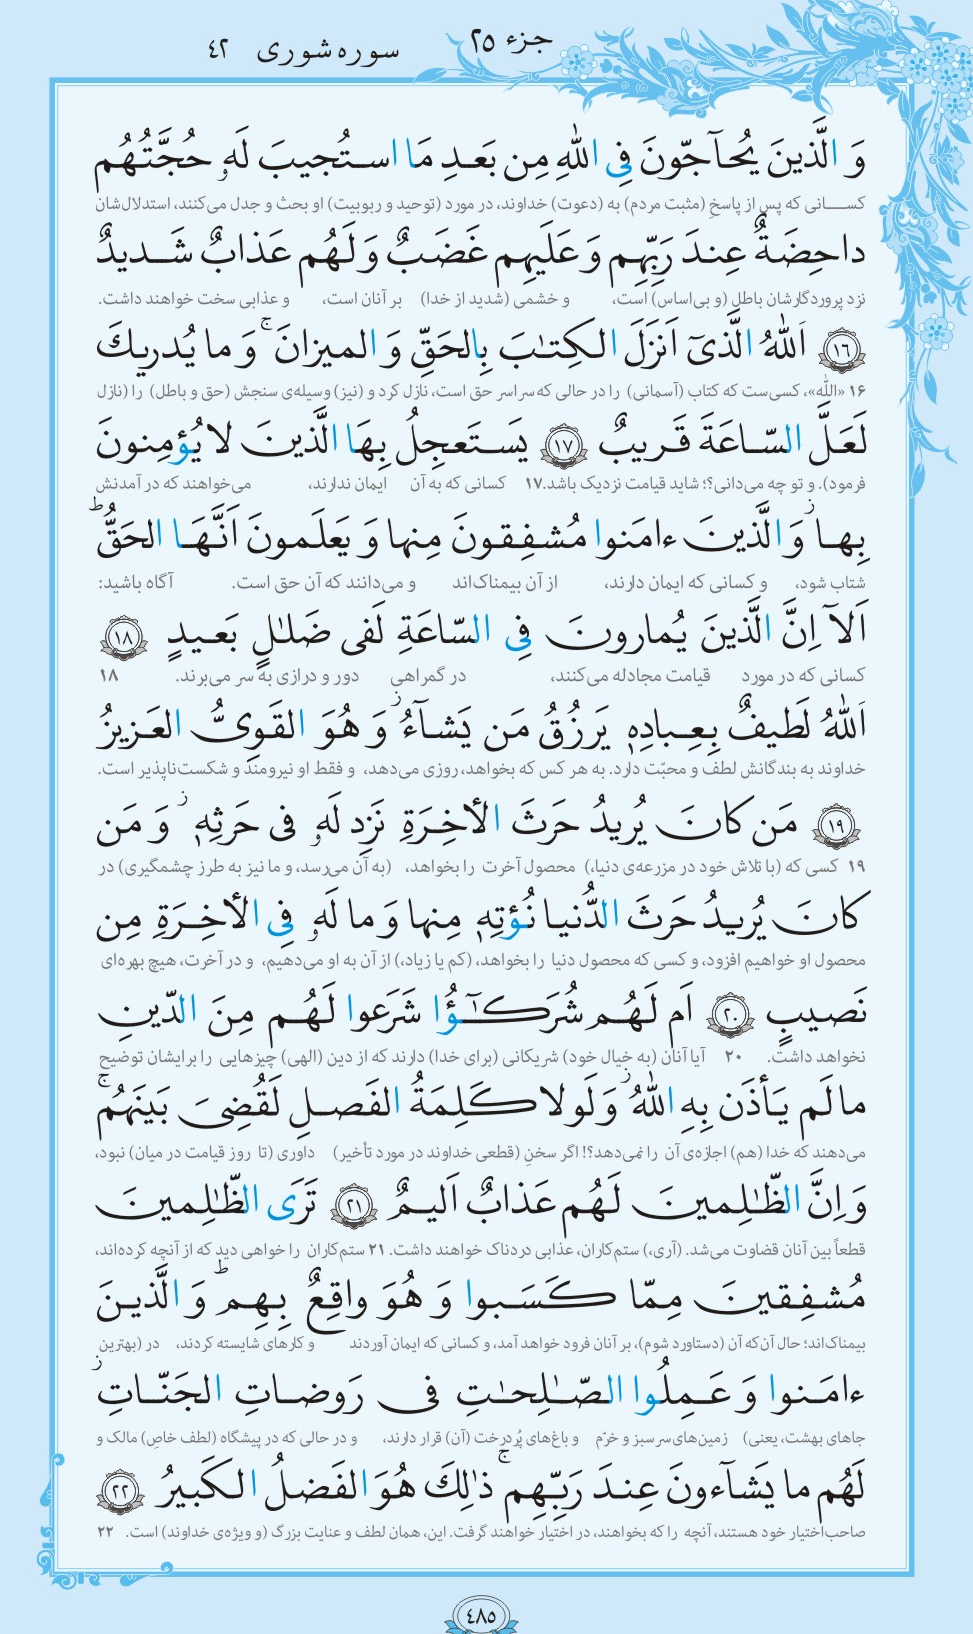 جزء ۲۵
سوره شوری ۴۲
وَ الَّذينَ يُحآجّونَ فِى اللّٰهِ مِن بَعدِ مَا استُجيبَ لَهٗ حُجَّتُهُم
کسانی که پس از پاسخِ (مثبت مردم) به (دعوت) خداوند، در مورد (توحید و ربوبیت) او بحث و جدل می‌کنند، استدلال‌شان
داحِضَةٌ عِندَ رَبِّهِم وَ عَلَيهِم غَضَبٌ وَ لَهُم عَذابٌ شَديدٌ
نزد پروردگارشان باطل (و بی‌اساس) است، و خشمی (شدید از خدا) بر آنان است، و عذابی سخت خواهند داشت.
﴿١٦﴾ اَللّٰهُ الَّذىٓ اَنزَلَ الكِتٰبَ بِالحَقِّ وَ الميزانَ ۚ وَ ما يُدريكَ
۱۶ «الله»، کسی‌ست که کتاب (آسمانی) را در حالی که سراسر حق است، نازل کرد و (نیز) وسیله‌ی سنجش (حق و باطل) را (نازل
لَعَلَّ السّاعَةَ قَريبٌ ﴿١٧﴾ يَستَعجِلُ بِهَا الَّذينَ لا يُؤمِنونَ
فرمود). و تو چه می‌دانی؟؛ شاید قیامت نزدیک باشد. ۱۷ کسانی که به آن ایمان ندارند، می‌خواهند که در آمدنش
بِها ۖ وَ الَّذينَ ءامَنوا مُشفِقونَ مِنها وَ يَعلَمونَ اَنَّهَا الحَقُّ ؕ
شتاب شود، و کسانی که ایمان دارند، از آن بیمناک‌اند و می‌دانند که آن حق است. آگاه باشید:
اَلآ اِنَّ الَّذينَ يُمارونَ فِى السّاعَةِ لَفى ضَلٰلٍ بَعيدٍ ﴿١٨﴾
کسانی که در مورد قیامت مجادله می‌کنند، در گمراهی دور و درازی به سر می‌برند. ۱۸
اَللّٰهُ لَطيفٌ بِعِبادِهٖ يَرزُقُ مَن يَشآءُ ۖ وَ هُوَ القَوِىُّ العَزيزُ
خداوند به بندگانش لطف و محبّت دارد. به هر کس که بخواهد، روزی می‌دهد، و فقط او نیرومند و شکست‌ناپذیر است.
﴿١٩﴾ مَن كانَ يُريدُ حَرثَ الأخِرَةِ نَزِد لَهٗ فى حَرثِهٖ ۖ وَ مَن
۱۹ کسی که (با تلاش خود در مزرعه‌ی دنیا،) محصول آخرت را بخواهد، (به آن می‌رسد، و ما نیز به طرز چشمگیری) در
كانَ يُريدُ حَرثَ الدُّنيا نُؤتِهٖ مِنها وَ ما لَهٗ فِى الأخِرَةِ مِن
محصول او خواهیم افزود، و کسی که محصول دنیا را بخواهد، (کم یا زیاد،) از آن به او می‌دهیم، و در آخرت، هیچ بهره‌ای
نَصيبٍ ﴿٢٠﴾ اَم لَهُم شُرَكـٰٓؤُا شَرَعوا لَهُم مِنَ الدّينِ
نخواهد داشت. ۲۰ آیا آنان (به خیال خود) شریکانی (برای خدا) دارند که از دین (الهی) چیزهایی را برایشان توضیح
ما لَم يَأذَن بِهِ اللّٰهُ ۖ وَ لَولا كَلِمَةُ الفَصلِ لَقُضِىَ بَينَهُم ۚ
می‌دهند که خدا (هم) اجازه‌ی آن را نمی‌دهد؟! اگر سخنِ (قطعی خداوند در مورد تأخیر) داوری (تا روز قیامت در میان) نبود،
وَ اِنَّ الظّٰلِمينَ لَهُم عَذابٌ اَليمٌ ﴿٢١﴾ تَرَى الظّٰلِمينَ
قطعاً بین آنان قضاوت می‌شد. (آری،) ستم‌کاران، عذابی دردناک خواهند داشت. ۲۱ ستم‌کاران را خواهی دید که از آنچه کرده‌اند،
مُشفِقينَ مِمّا كَسَبوا وَ هُوَ واقِعٌ بِهِم ؕ وَ الَّذينَ
بیمناک‌اند؛ حال آن‌که آن (دستاورد شوم)، بر آنان فرود خواهد آمد، و کسانی که ایمان آوردند و کارهای شایسته کردند، در (بهترین
ءامَنوا وَ عَمِلُوا الصّٰلِحٰتِ فى رَوضاتِ الجَنّاتِ ۖ
جاهای بهشت، یعنی) زمین‌های سرسبز و خرّم و باغ‌های پُردرخت (آن) قرار دارند، و در حالی که در پیشگاه (لطف خاصِ) مالک و
لَهُم ما يَشآءونَ عِندَ رَبِّهِم ۚ ذٰلِكَ هُوَ الفَضلُ الكَبيرُ ﴿٢٢﴾
صاحب‌اختیار خود هستند، آنچه را که بخواهند، در اختیار خواهند گرفت. این، همان لطف و عنایت بزرگ (و ویژه‌ی خداوند) است. ۲۲
۴۸۵